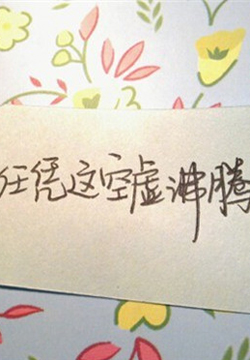 任凭这空虚沸腾